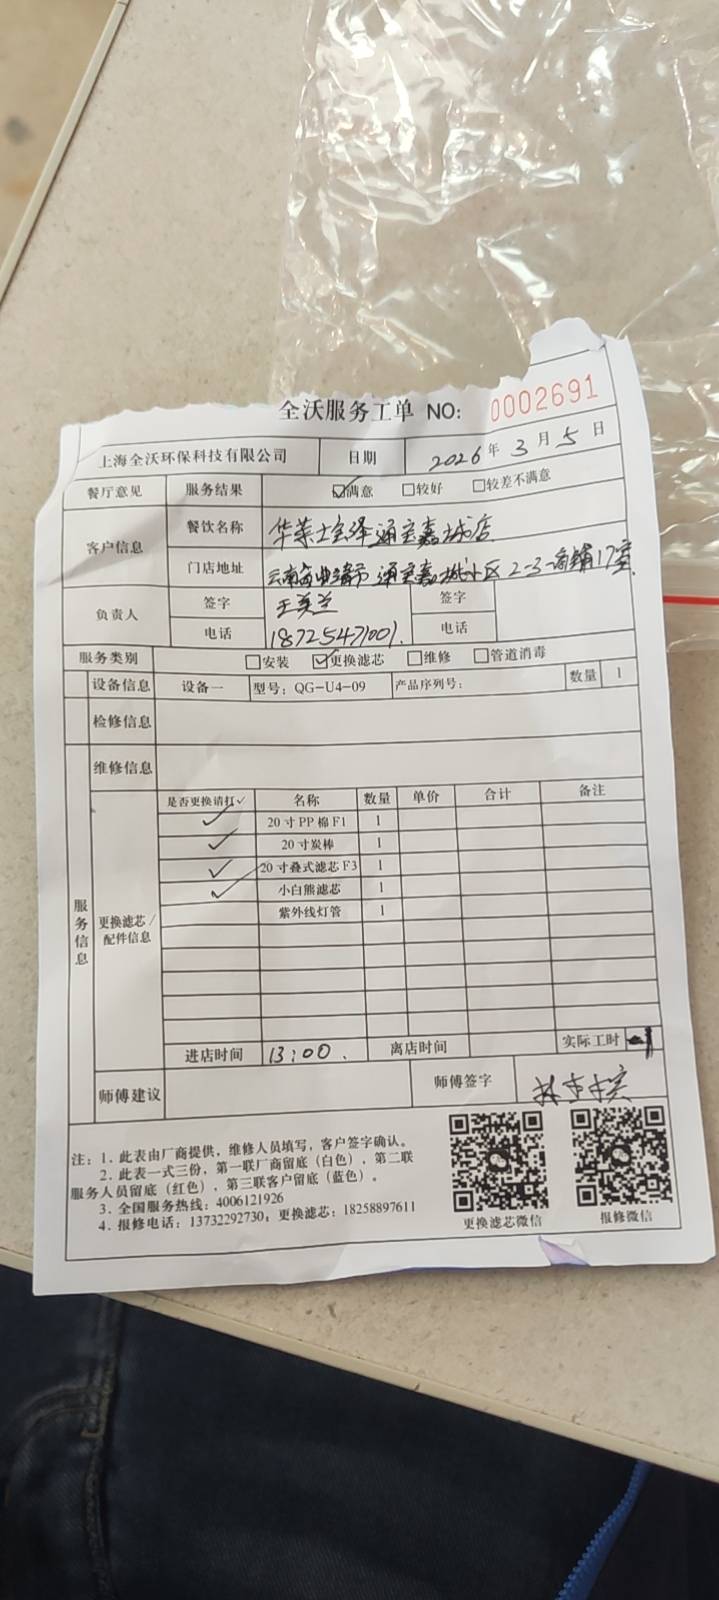 全沃服务工单 NO: 0002691
上海全沃环保科技有限公司 日期 2026年3月5日
餐厅意见 服务结果 ☑满意 □较好 □较差不满意
客户信息 餐饮名称 华莱士会泽通宝嘉城店
门店地址 云南省曲靖市通宝嘉城小区2-3-商铺17室
负责人 签字 王美兰 签字
电话 18725471001. 电话
服务类别 □安装 ☑更换滤芯 □维修 □管道消毒
设备信息 设备一 型号: QG-U4-09 产品序列号: 数量 1
检修信息
维修信息
服务信息
更换滤芯/配件信息
是否更换请打✓ 名称 数量 单价 合计 备注
✓ 20寸PP棉F1 1
✓ 20寸炭棒 1
✓ 20寸叠式滤芯F3 1
✓ 小白熊滤芯 1
紫外线灯管 1
进店时间 13:00. 离店时间 实际工时
师傅建议 师傅签字
注: 1. 此表由厂商提供, 维修人员填写, 客户签字确认。
2. 此表一式三份, 第一联厂商留底 (白色), 第二联
服务人员留底 (红色), 第三联客户留底 (蓝色)。
3. 全国服务热线: 4006121926
4. 报修电话: 13732292730; 更换滤芯: 18258897611
更换滤芯微信 报修微信